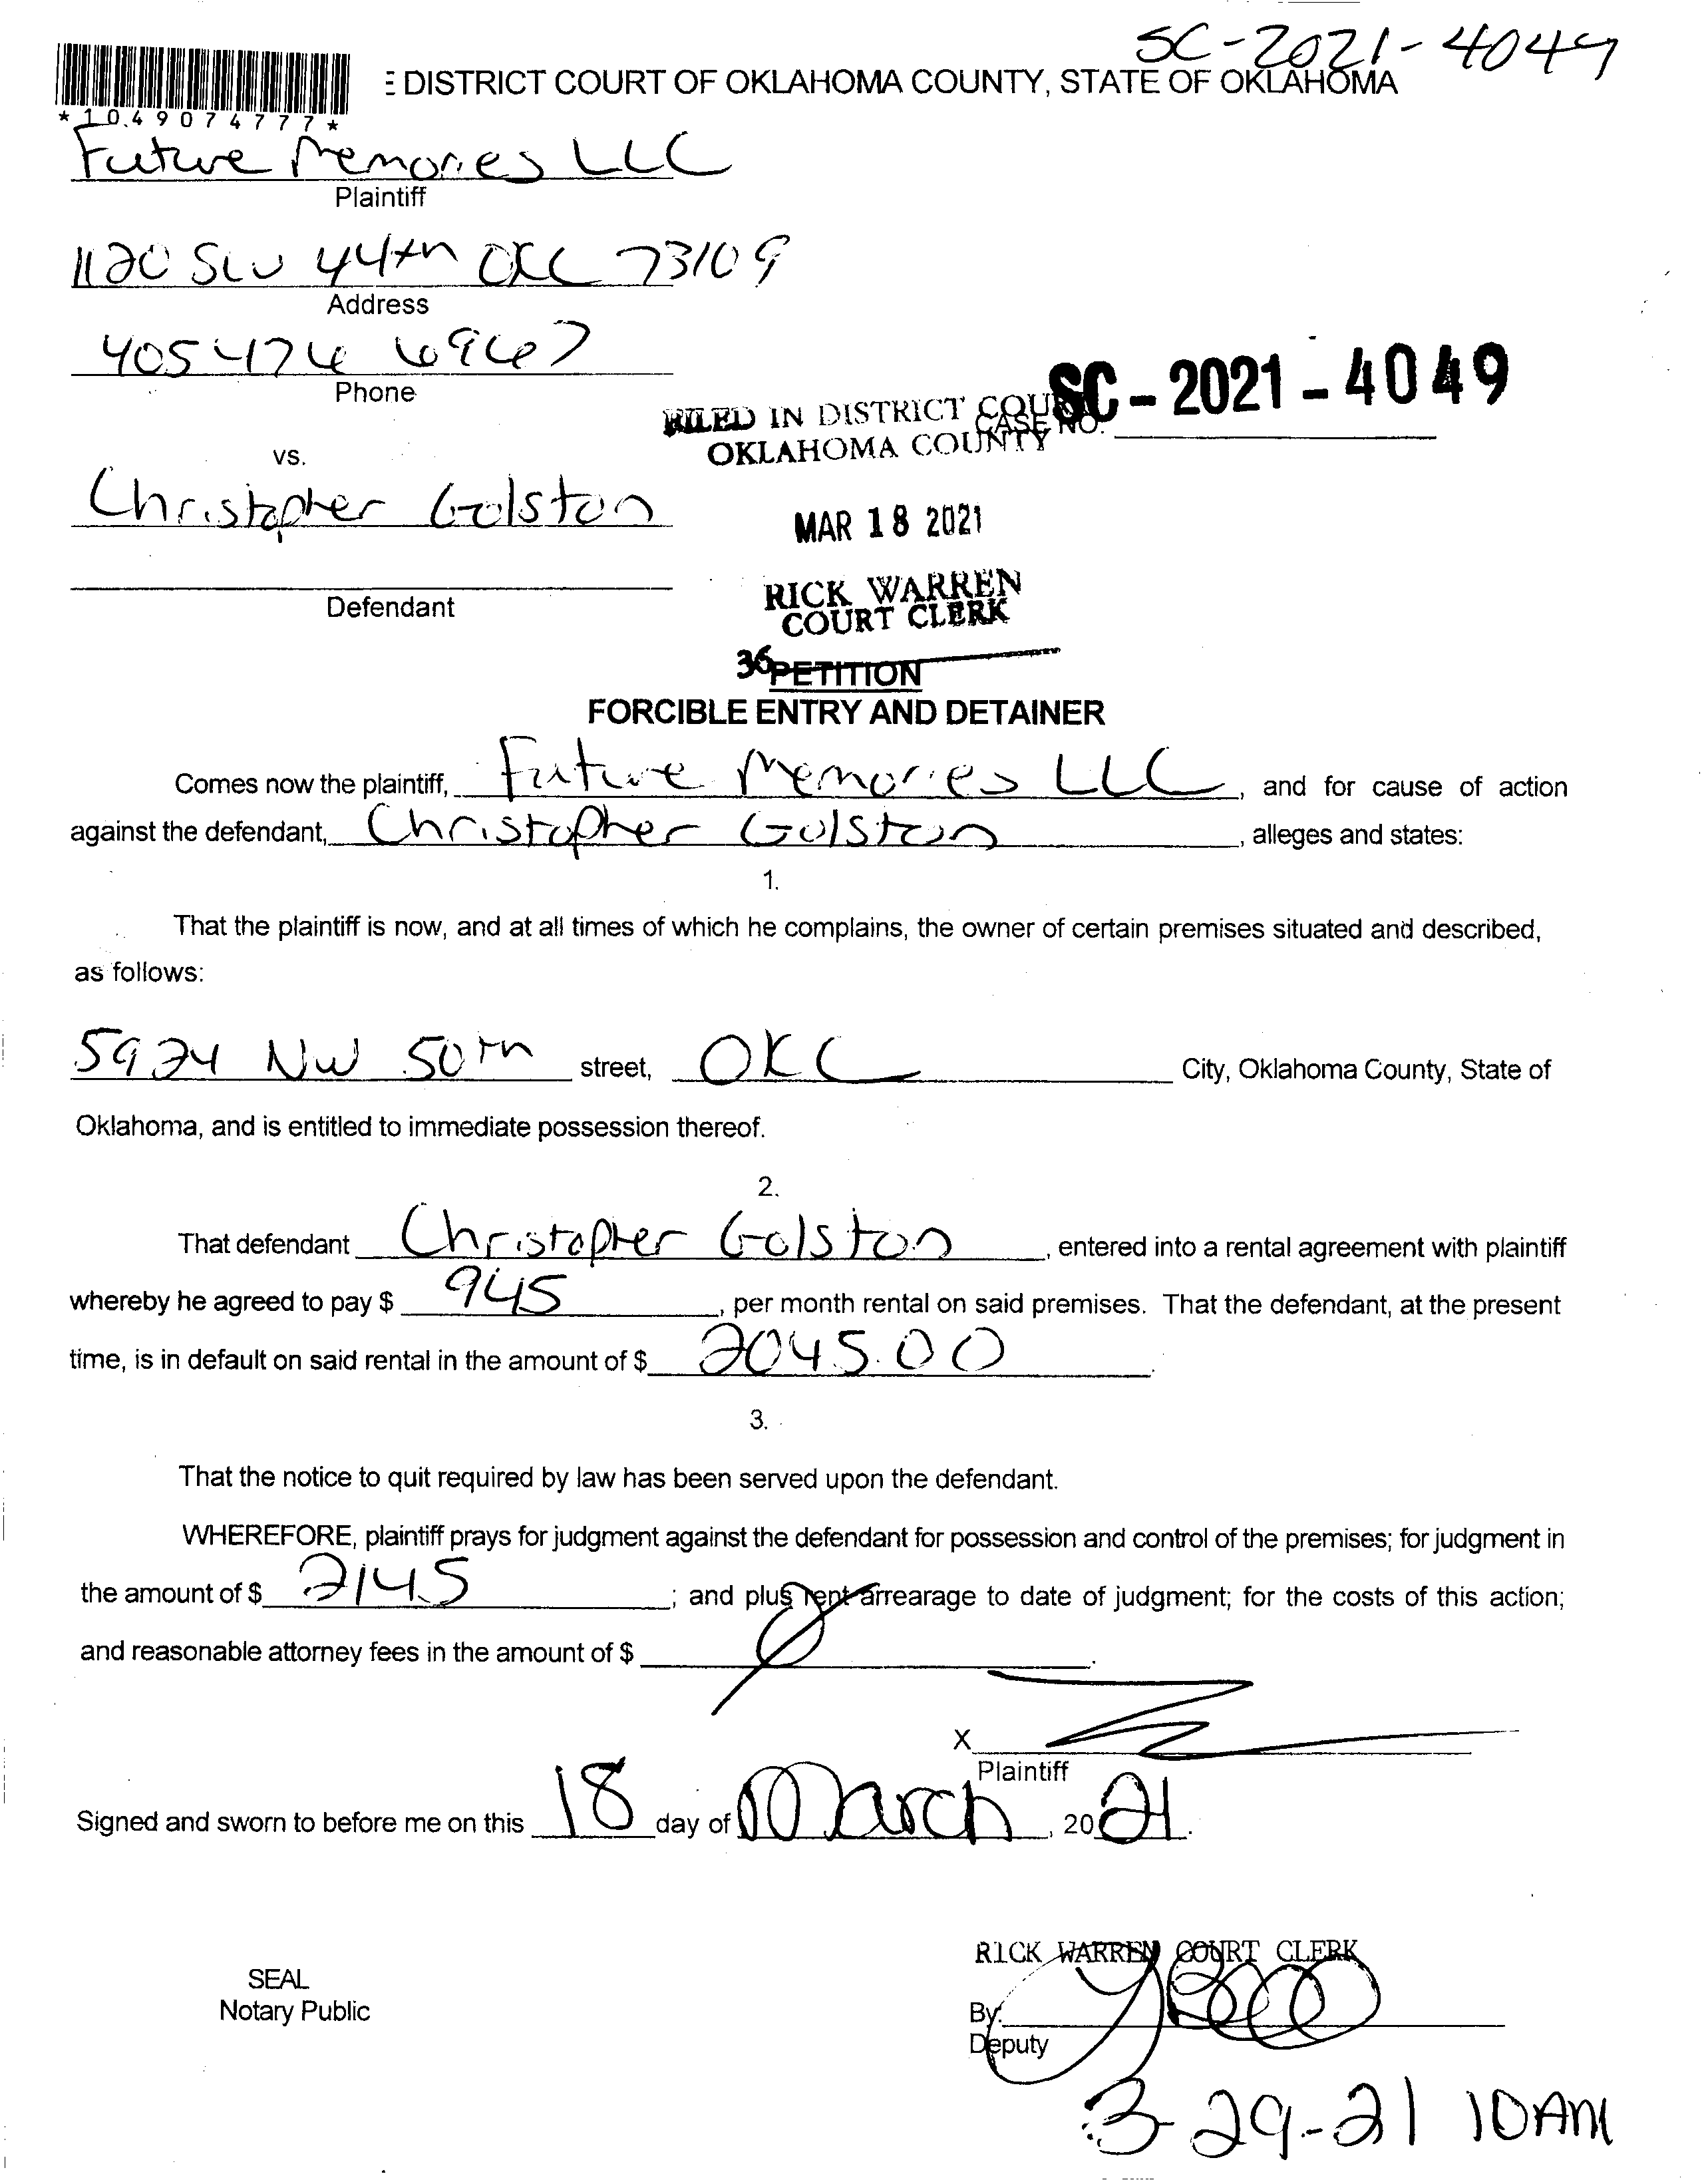 SC-2021-4049
E DISTRICT COURT OF OKLAHOMA COUNTY, STATE OF OKLAHOMA
*1049074777*
Future Memories LLC
Plaintiff
1120 SW 44th OKC 73109
Address
405 474 6967
Phone
SC-2021-4049
FILED IN DISTRICT COURT
CASE NO.
OKLAHOMA COUNTY
vs.
Christopher Golston
MAR 18 2021
Defendant
RICK WARREN
COURT CLERK
36
PETITION
FORCIBLE ENTRY AND DETAINER
Comes now the plaintiff, Future Memories LLC, and for cause of action
against the defendant, Christopher Golston, alleges and states:
1.
That the plaintiff is now, and at all times of which he complains, the owner of certain premises situated and described,
as follows:
5924 NW 50th street, OKC City, Oklahoma County, State of
Oklahoma, and is entitled to immediate possession thereof.
2.
That defendant Christopher Golston, entered into a rental agreement with plaintiff
whereby he agreed to pay $ 945, per month rental on said premises. That the defendant, at the present
time, is in default on said rental in the amount of $ 2045.00.
3.
That the notice to quit required by law has been served upon the defendant.
WHEREFORE, plaintiff prays for judgment against the defendant for possession and control of the premises; for judgment in
the amount of $ 2145; and plus rent arrearage to date of judgment; for the costs of this action;
and reasonable attorney fees in the amount of $ Ø.
X
Plaintiff
Signed and sworn to before me on this 18 day of March, 2021.
RICK WARREN COURT CLERK
SEAL
Notary Public
By:
Deputy
3-29-21 10AM